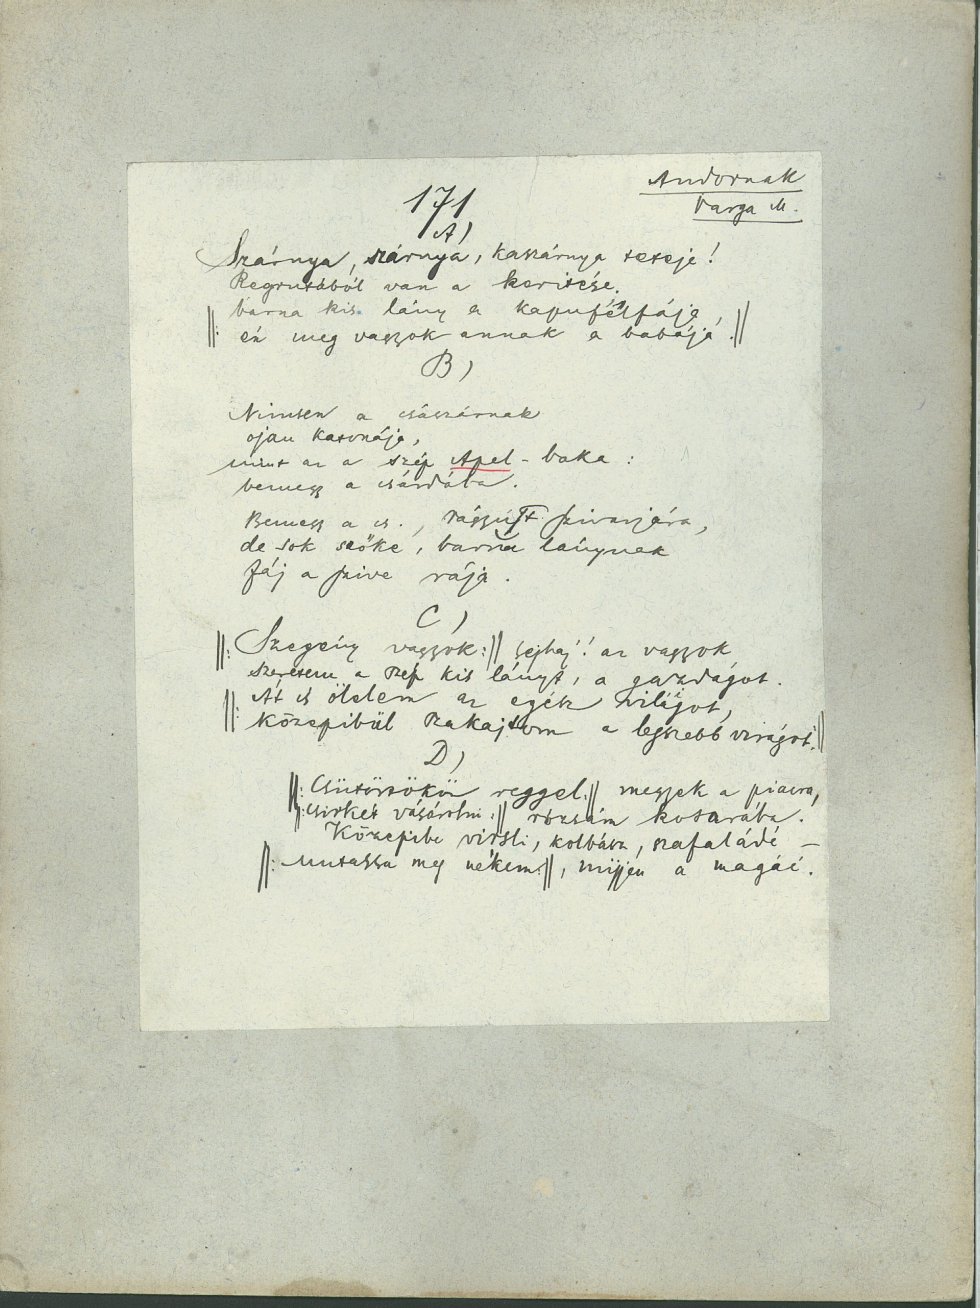 Andornak
Varga M.
171
A)
Szárnya, szárnya, kaszárnya teteje!
Regrutából van a keritése.
||: barna kis lány a kapufélfája,
én meg vagyok annak a babája. :||
B)
Nincsen a császárnak
ojan katonája,
mint az a szép Apel-baka:
bemegy a csárdába.
Bemegy a cs., rágyujt szivarjára,
de sok szőke, barna lánynak
fáj a szive rája.
C)
||: Szegény vagyok :|| sejhaj! az vagyok
szeretem a szép kis lányt, a gazdagot.
||: Át is ölelem az egész világot,
középibül szakajtom a legszebb virágot. :||
D)
||: Csütörtökön reggel :|| megyek a piacra,
||: csirkét vásárolni :|| rózsám kosarába.
Közepibe virsli, kolbász, szafaládé —
||: mutassa meg nékem :||, mijjen a magáé.